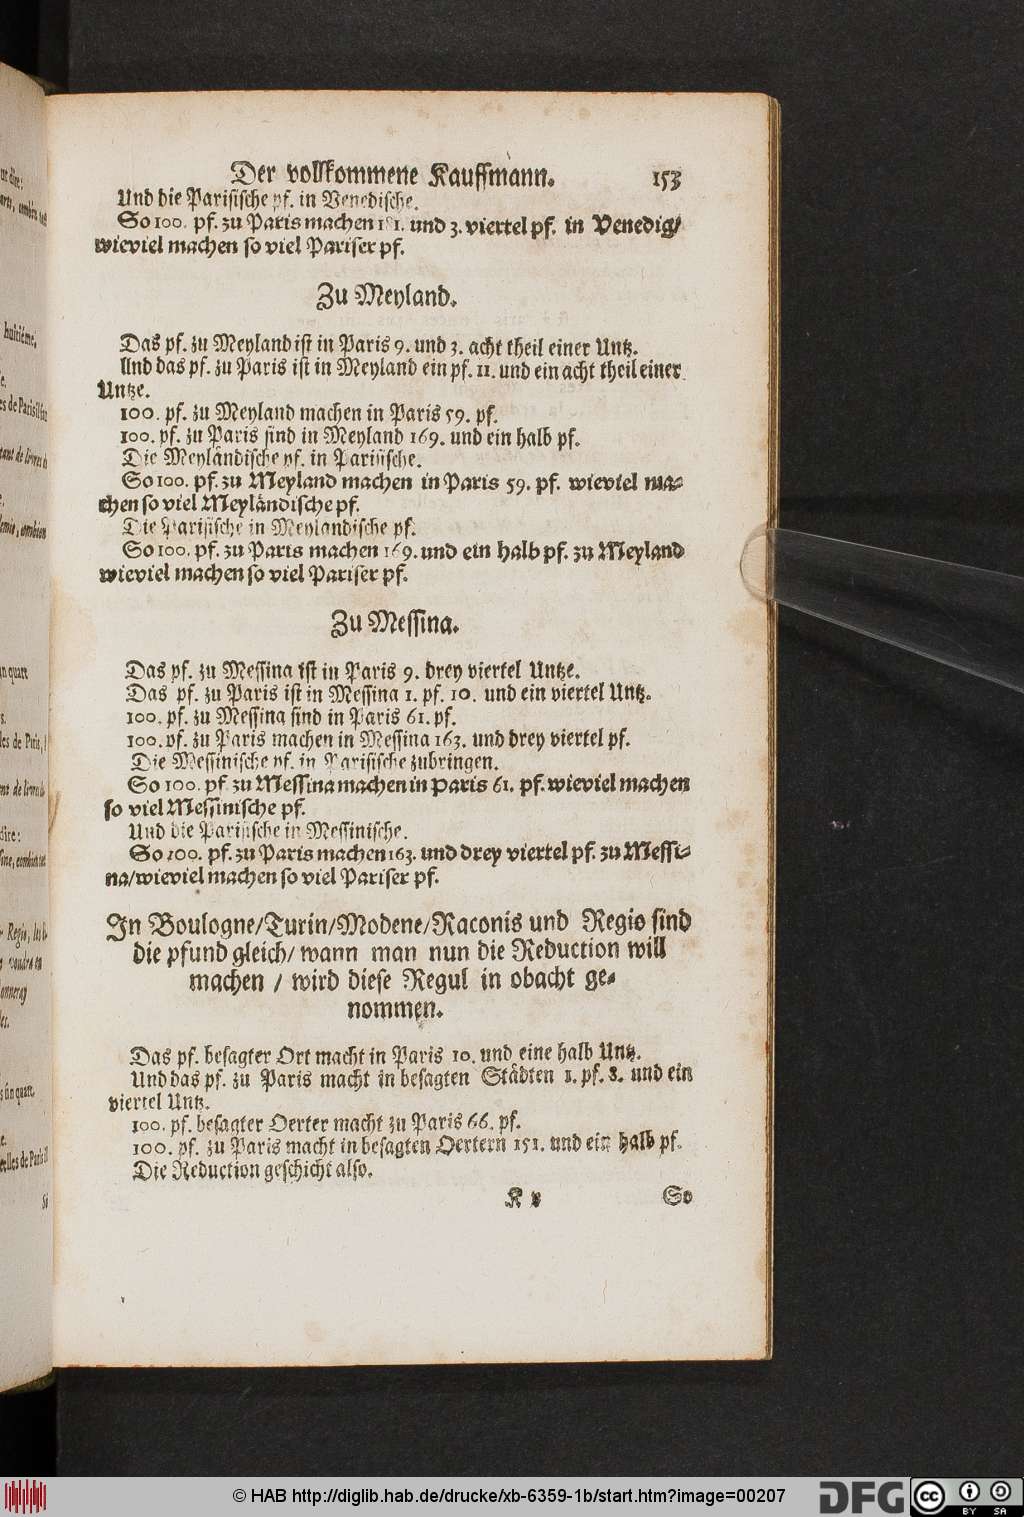 Der vollkommene Kauffmann. 153
Und die Parisische pf. in Venedische.
So 100. pf. zu Paris machen 181. und 3. viertel pf. in Venedig/
wieviel machen so viel Pariser pf.
Zu Meyland.
Das pf. zu Meyland ist in Paris 9. und 3. acht theil einer Untz.
Und das pf. zu Paris ist in Meyland ein pf. 11. und ein acht theil einer
Untze.
100. pf. zu Meyland machen in Paris 59. pf.
100. pf. zu Paris sind in Meyland 169. und ein halb pf.
Die Meyländische pf. in Parisische.
So 100. pf. zu Meyland machen in Paris 59. pf. wieviel ma-
chen so viel Meyländische pf.
Die Parisische in Meylandische pf.
So 100. pf. zu Paris machen 169. und ein halb pf. zu Meyland
wieviel machen so viel Pariser pf.
Zu Messina.
Das pf. zu Messina ist in Paris 9. drey viertel Untze.
Das pf. zu Paris ist in Messina 1. pf. 10. und ein viertel Untz.
100. pf. zu Messina sind in Paris 61. pf.
100. pf. zu Paris machen in Messina 163. und drey viertel pf.
Die Messinische pf. in Parisische zubringen.
So 100. pf. zu Messina machen in Paris 61. pf. wieviel machen
so viel Messinische pf.
Und die Parisische in Messinische.
So 100. pf. zu Paris machen 163. und drey viertel pf. zu Messi-
na/wieviel machen so viel Pariser pf.
In Boulogne/Turin/Modene/Raconis und Regio sind
die pfund gleich/ wann man nun die Reduction will
machen / wird diese Regul in obacht ge-
nommen.
Das pf. besagter Ort macht in Paris 10. und eine halb Untz.
Und das pf. zu Paris macht in besagten Städten 1. pf. 8. und ein
viertel Untz.
100. pf. besagter Oerter macht zu Paris 66. pf.
100. pf. zu Paris macht in besagten Oertern 151. und ein halb pf.
Die Reduction geschicht also.
K v So
© HAB http://diglib.hab.de/drucke/xb-6359-1b/start.htm?image=00207
DFG
cc BY SA